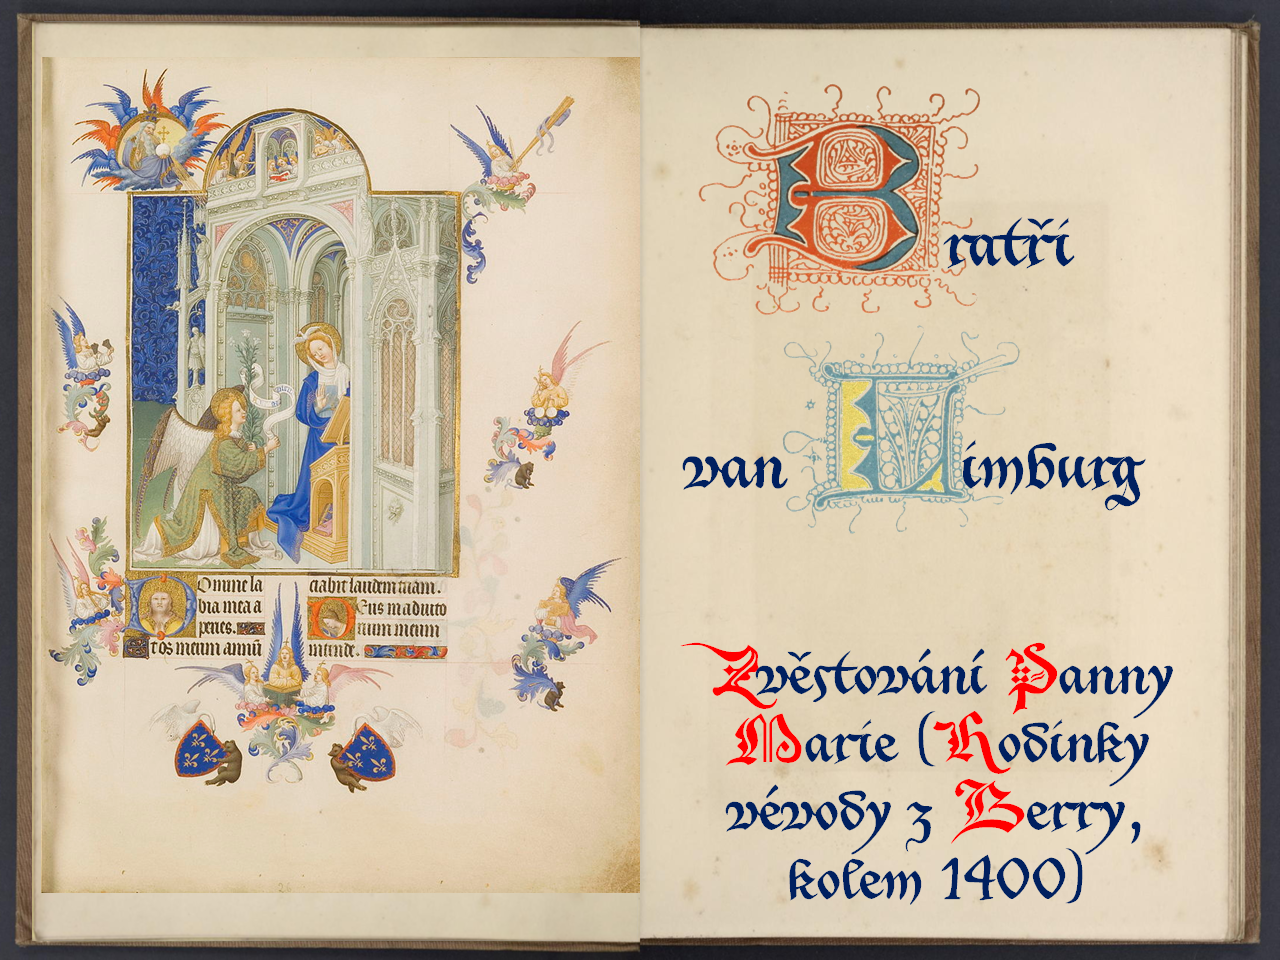 Omine la
bia mea a
peries.
t os meum annū
ciabit laudem tuam.
Eus in adiuto
rium meum
intende.
Bratři
van Limburg
Zvěstování Panny
Marie (Hodinky
vévody z Berry,
kolem 1400)